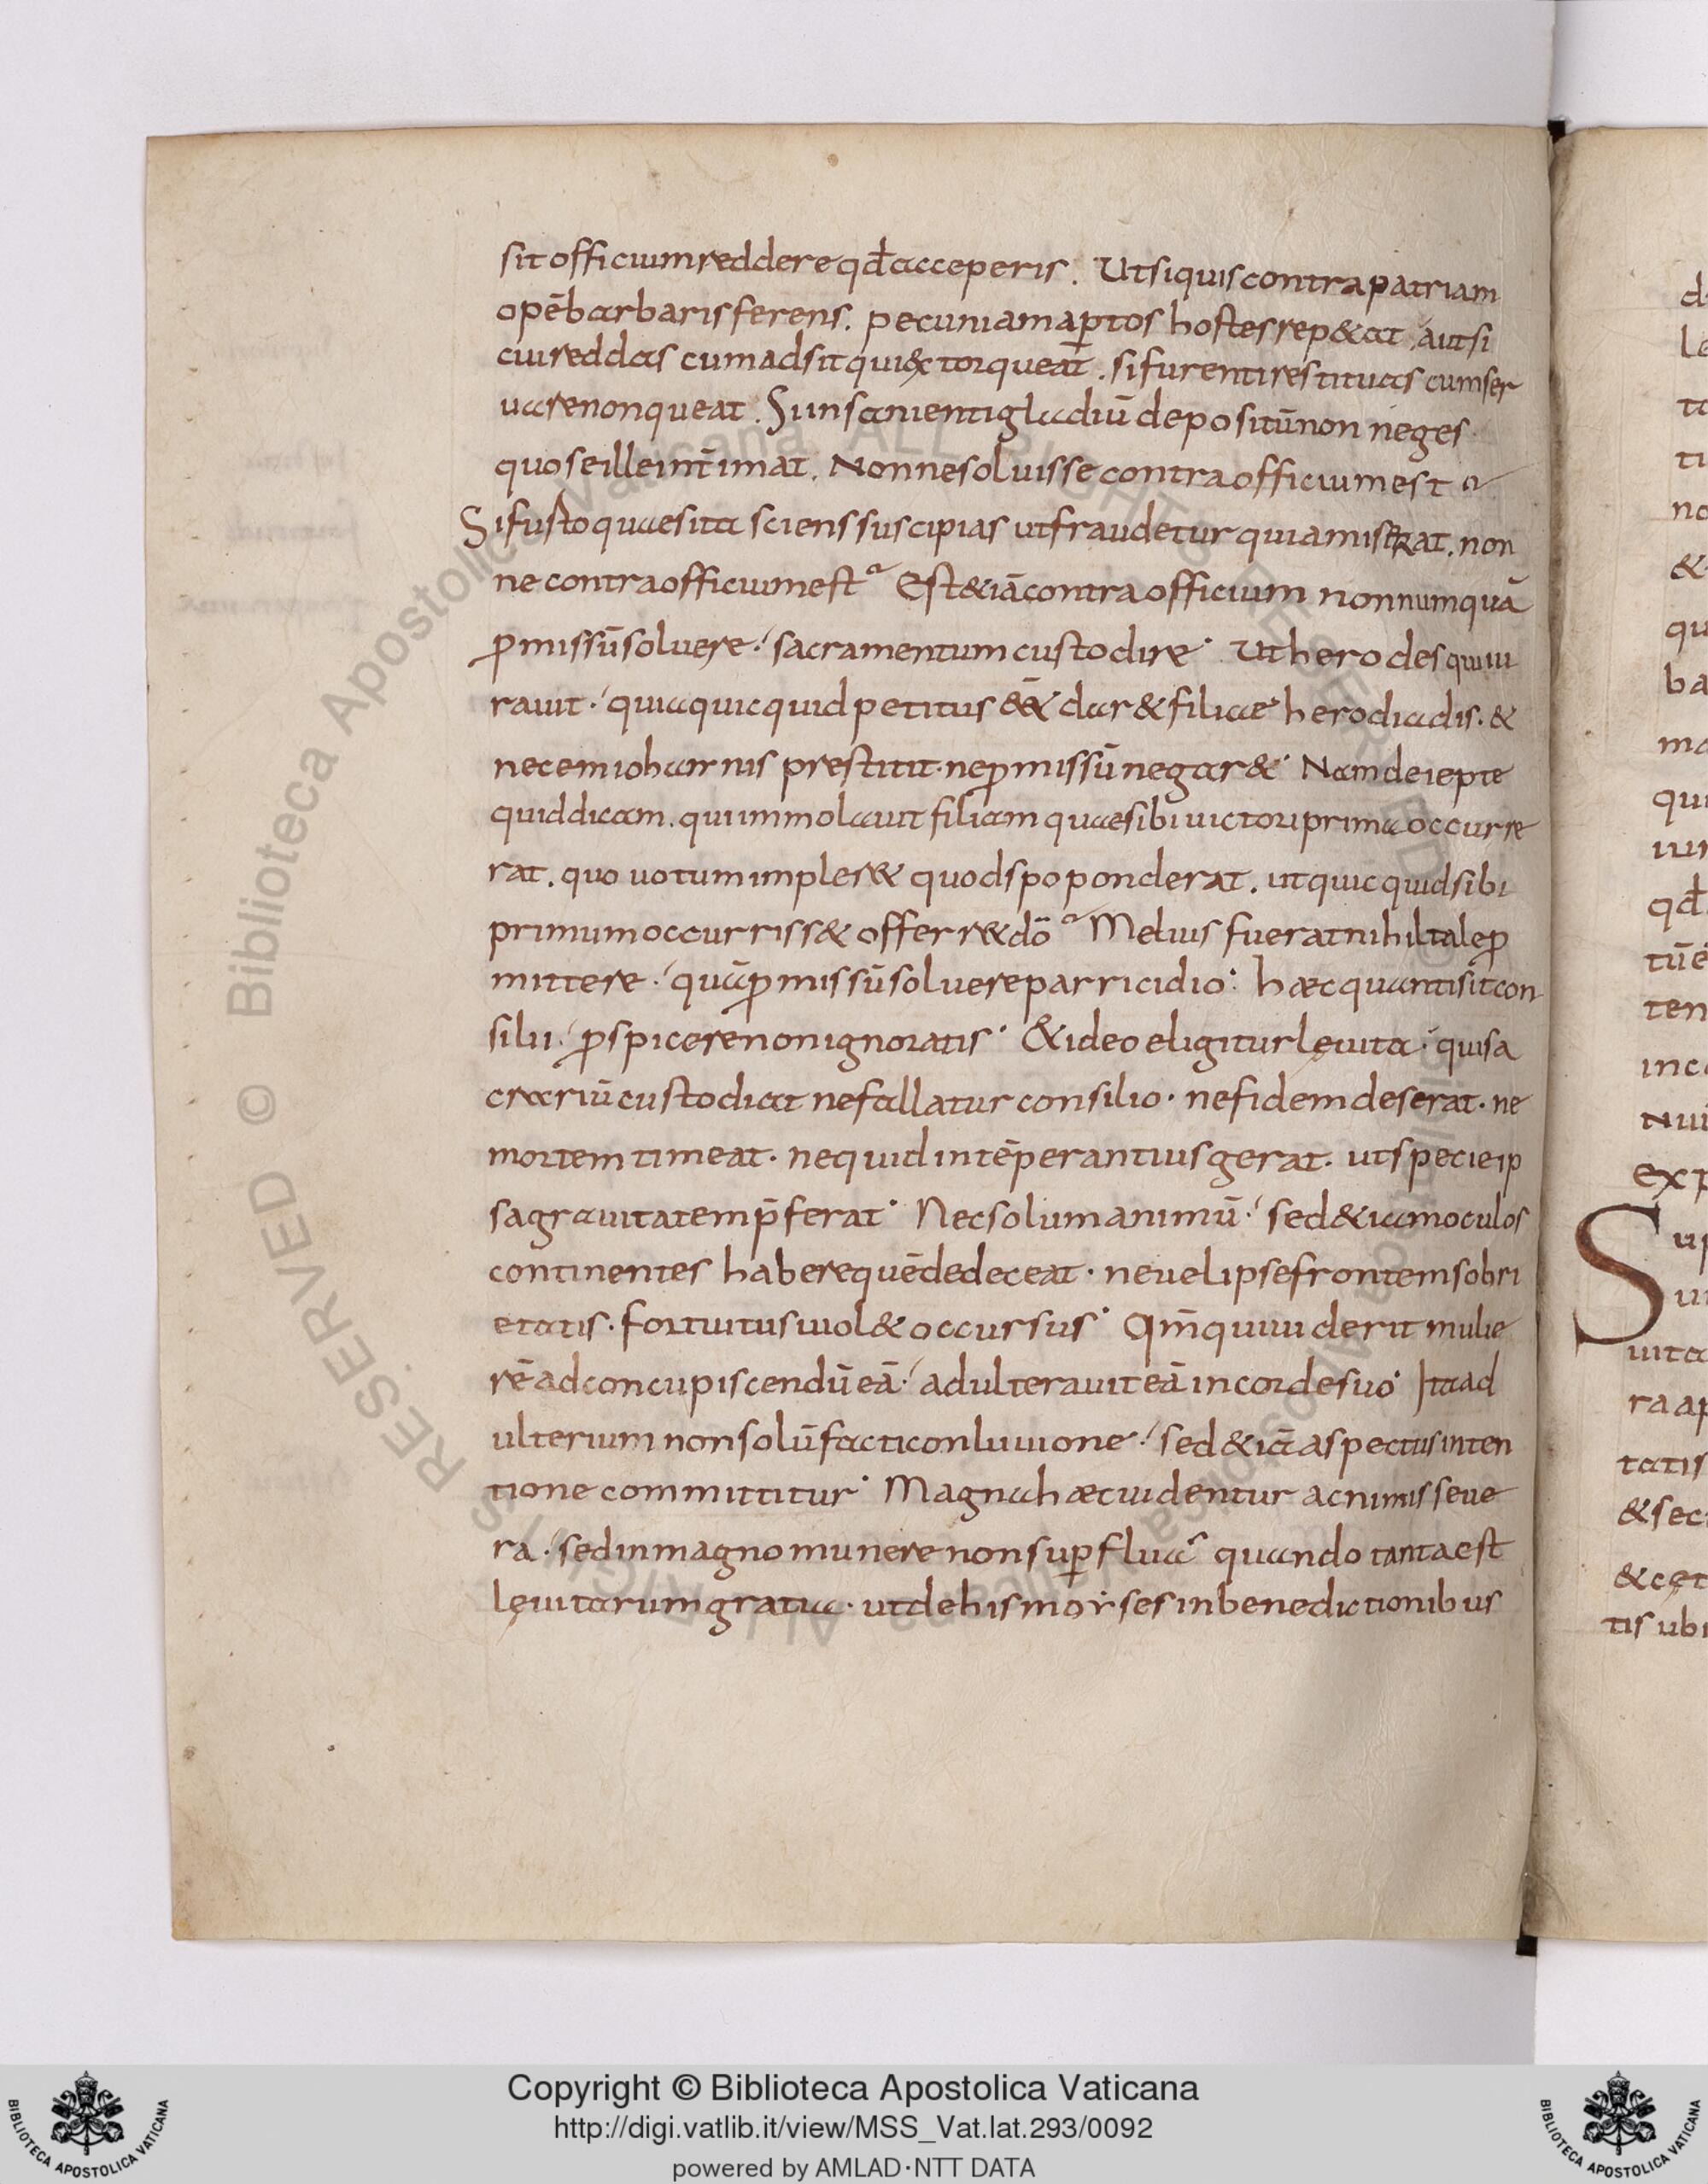 sit officium reddere qđ acceperis. Ut si quis contra patriam
opē barbaris ferens. pecuniam aꝑtos hostes rep&at. aut si
cui reddas cum adsit qui extorqueat. si furenti restituas cum ser
uare non queat. Si insanienti gladiū depositū non neges
quo se ille intimat. Nonne soluisse contra officium est
Si fusto quaesita sciens suscipias ut fraudetur quiamiserat. non
ne contra officium est Est &iā contra officium nonnumquā
ꝓmissū soluere. sacramentum custodire. Ut herodes qui iu
rauit. quia quicquid petitus dar& filiae herodiadis. &
necem iohannis prestitit. ne ꝓmissū negar&. Nam de iepte
quid dicam. qui immolauit filiam quae sibi uictori prima occurre
rat. quo uotum impler& quod spoponderat. ut quicquid sibi
primum occurriss& offerr& dō Melius fuerat nihil tale ꝓ
mittere. quā ꝓmissū soluere parricidio. haec quanti sit con
silii. ꝓspicere non ignoratis. & ideo eligitur leuita. qui sa
crariū custodiat ne fallatur consilio. ne fidem deserat. ne
mortem timeat. ne quid intēperantius gerat. ut specie ip
sa grauitatem p̄ferat. Nec solum animū. sed &iam oculos
continentes habere quē dedeceat. ne uel ipse frontem sobri
etatis. fortuitus uiol& occursus. Qm̄ qui uiderit mulie
rē ad concupiscendū eā. adulterauit eā in corde suo. Ita ad
ulterium non solū facti conluuione. sed &iā aspectus inten
tione committitur. Magna haec uidentur ac nimis seue
ra. sed in magno munere non suꝑflua. quando tanta est
leuitarum gratia. ut de his moyses in benedictionibus
RESERVED © Biblioteca Apostolica Vaticana ALL RIGHTS RESERVED © Biblioteca Apostolica Vaticana ALL RIGHTS
Copyright © Biblioteca Apostolica Vaticana
http://digi.vatlib.it/view/MSS_Vat.lat.293/0092
powered by AMLAD·NTT DATA
BIBLIOTECA APOSTOLICA VATICANA
BIBLIOTECA APOSTOLICA VATICANA